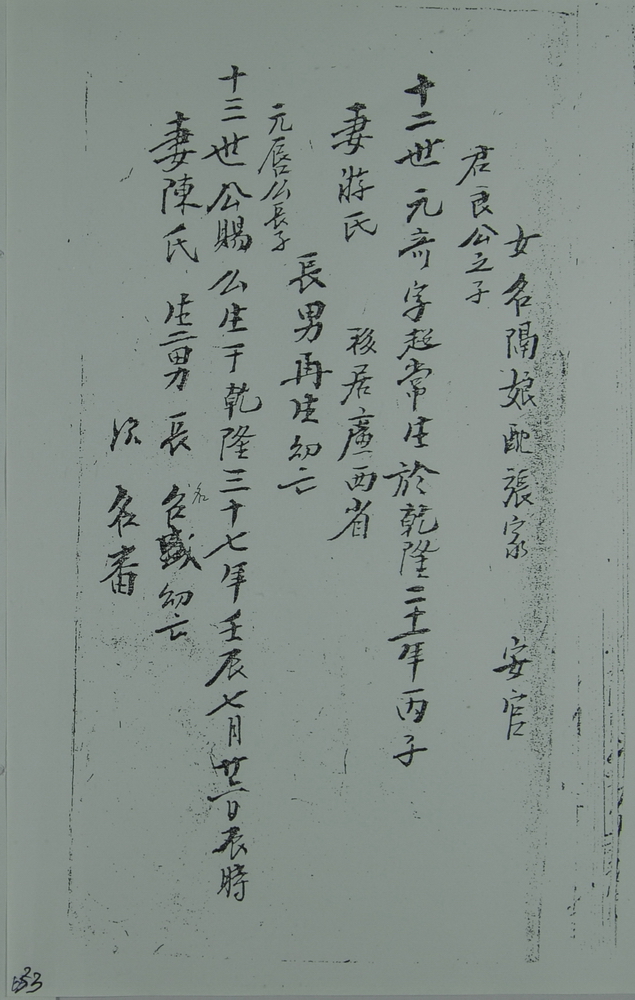 女名隔娘配張家　安官
君良公之子
十二世元彥字起常生於乾隆二十一年丙子
妻蔣氏　移居廣西省
長男再生幼亡
元唇公長子
十三世公賜公生于乾隆三十七年壬辰七月廿一日辰時
妻陳氏生二男長名盛幼亡
名
次名番
133